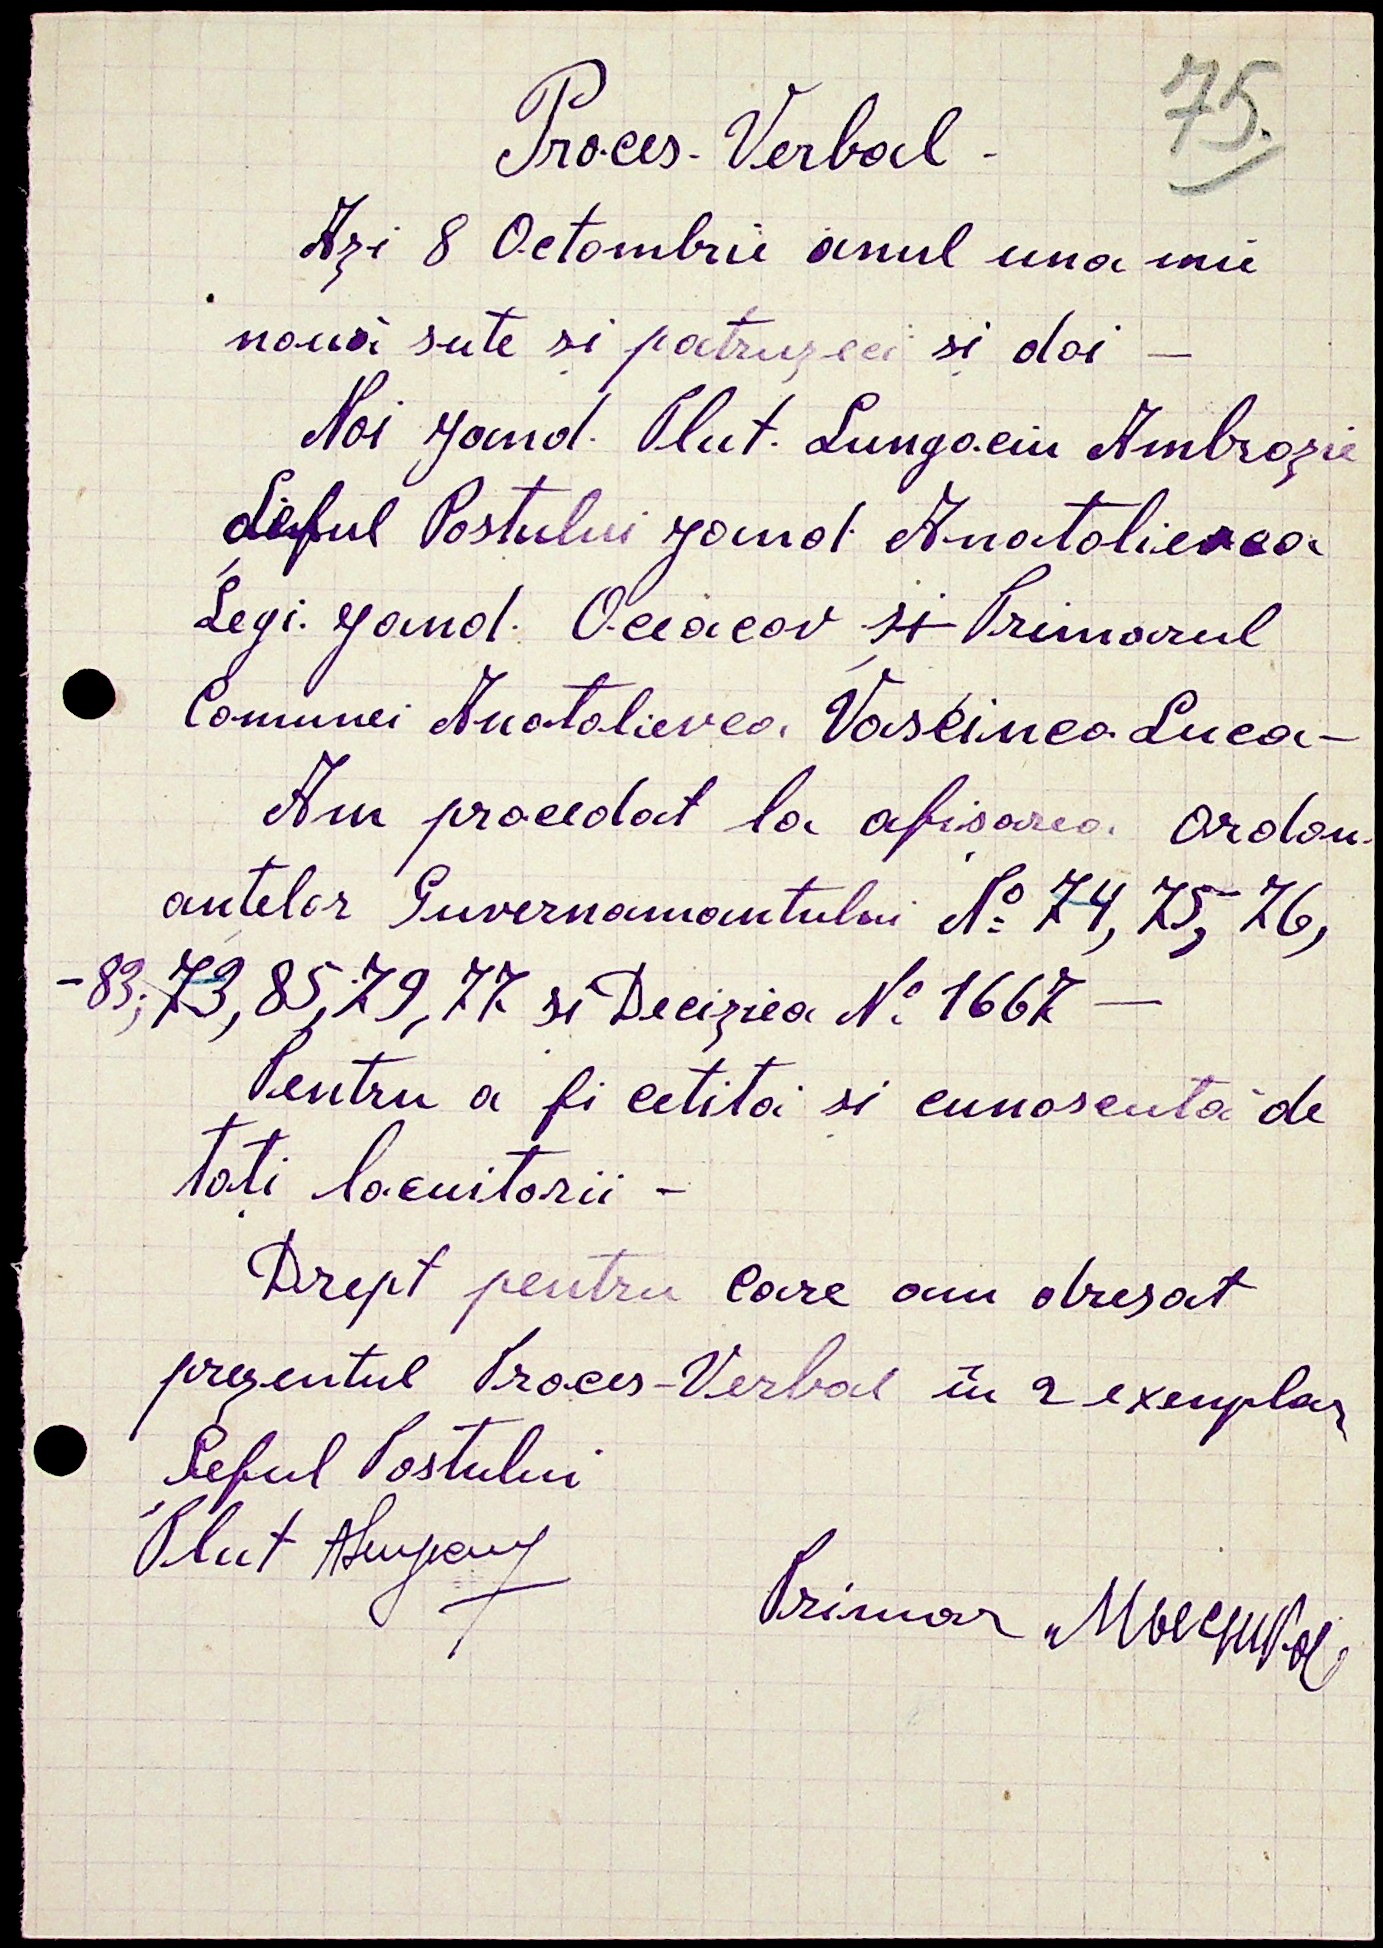 75.
Proces-Verbal -
Azi 8 Octombrie anul una mie
nouă sute și patruzeci și doi —
Noi Jand. Plut. Lungociu Ambrozie
Șeful Postului Jand. Anatolievca
Legi. Jand. Oceacov și Primarul
Comunei Anatolievca Vascinco Luca —
Am procedat la afișarea ordon-
antelor Guvernamantului No: 74, 75, 76,
- 83, 73, 85, 79, 77 si Deciziea No: 1667 —
Pentru a fi cetită și cunoscută de
toți locuitorii -
Drept pentru care am dresat
prezentul Proces-Verbal în 2 exemplar
Șeful Postului
Plut
Primar